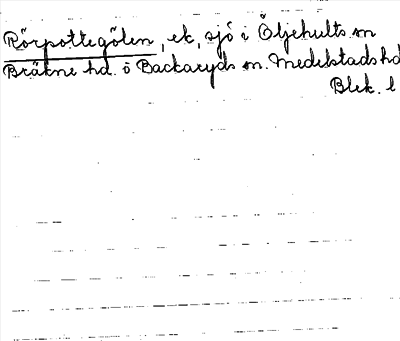 Rörpottegölen, ek, sjö i Öljehults sn
Bräkne hd. o Backaryds sn. Medelstads hd
Blek. l